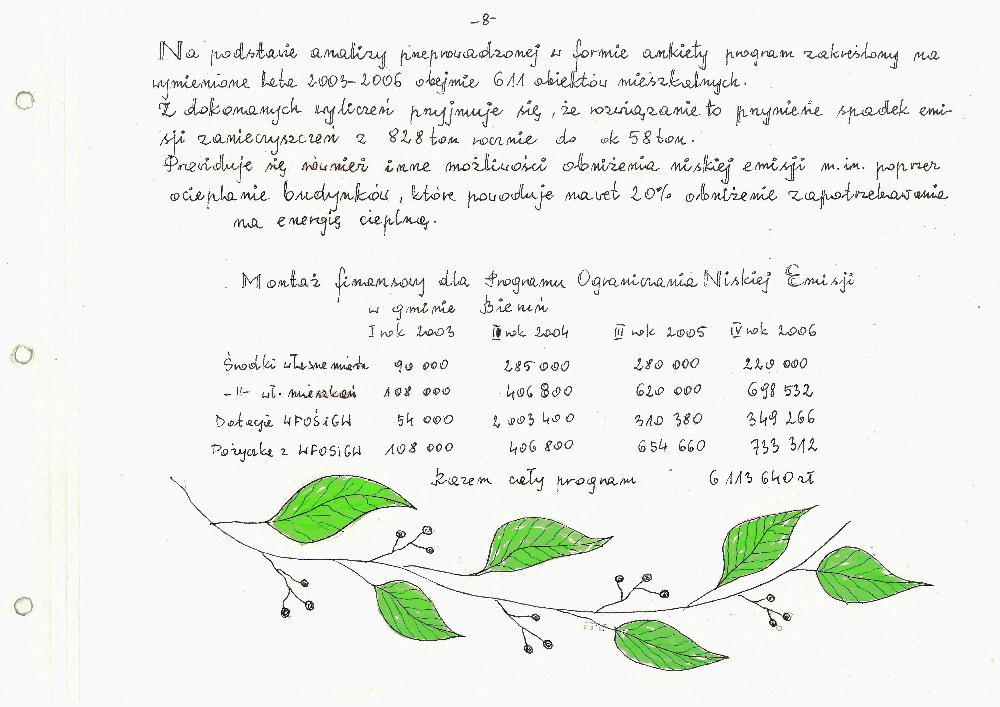 -8-
Na podstawie analizy przeprowadzonej w formie ankiety program zakreślony na
wymienione lata 2003-2006 obejmie 611 obiektów mieszkalnych.
Z dokonanych wyliczeń przyjmuje się, że rozwiązanie to przyniesie spadek emi-
sji zanieczyszczeń z 828 ton rocznie do ok 58 ton.
Przewiduje się również inne możliwości obniżenia niskiej emisji m.in. poprzez
ocieplanie budynków, które powoduje nawet 20% obniżenie zapotrzebowania
na energię cieplną.
Montaż finansowy dla Programu Ograniczania Niskiej Emisji
w gminie Bieruń
I rok 2003 II rok 2004 III rok 2005 IV rok 2006
Środki własne miasta 90 000 285 000 280 000 220 000
-"- wł. mieszkań 108 000 406 800 620 000 698 532
Dotacje WFOŚiGW 54 000 2 003 400 310 380 349 266
Pożyczka z WFOSiGW 108 000 406 800 654 660 733 312
Razem cały program 6 113 640 zł